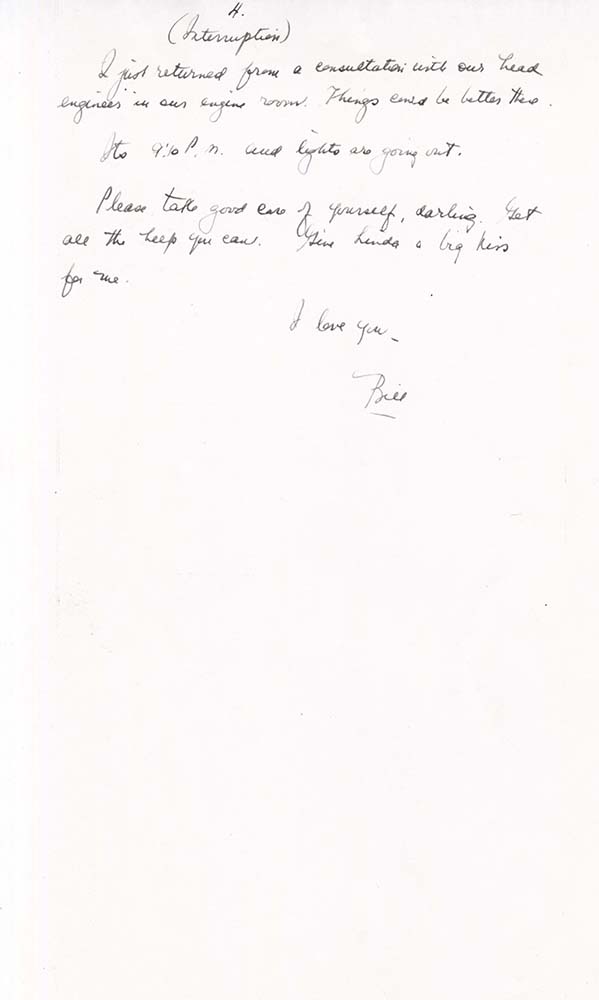 4.
(Interruption)
I just returned from a consultation with our head
engineer in our engine room. Things could be better there.
Its 9:10 P.M. and lights are going out.
Please take good care of yourself, darling. Get
all the help you can. Give Linda a big kiss
for me.
I love you –
Bill